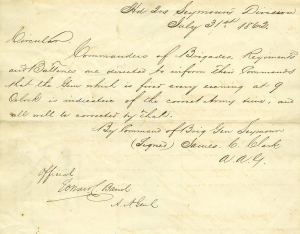 Hd Qrs Seymour's Division
July 31st 1862
Circular
Commanders of Brigades, Regiments
and Batteries are directed to inform their Commands
that the Gun which is fired every evening at 9
Oclock is indicative of the correct Army time, and
all will be corrected by that.
By Command of Brig Gen Seymour
(Signed) James C. Clark
A.A.G.
Official
Edward C. Baird
A. A. Genl